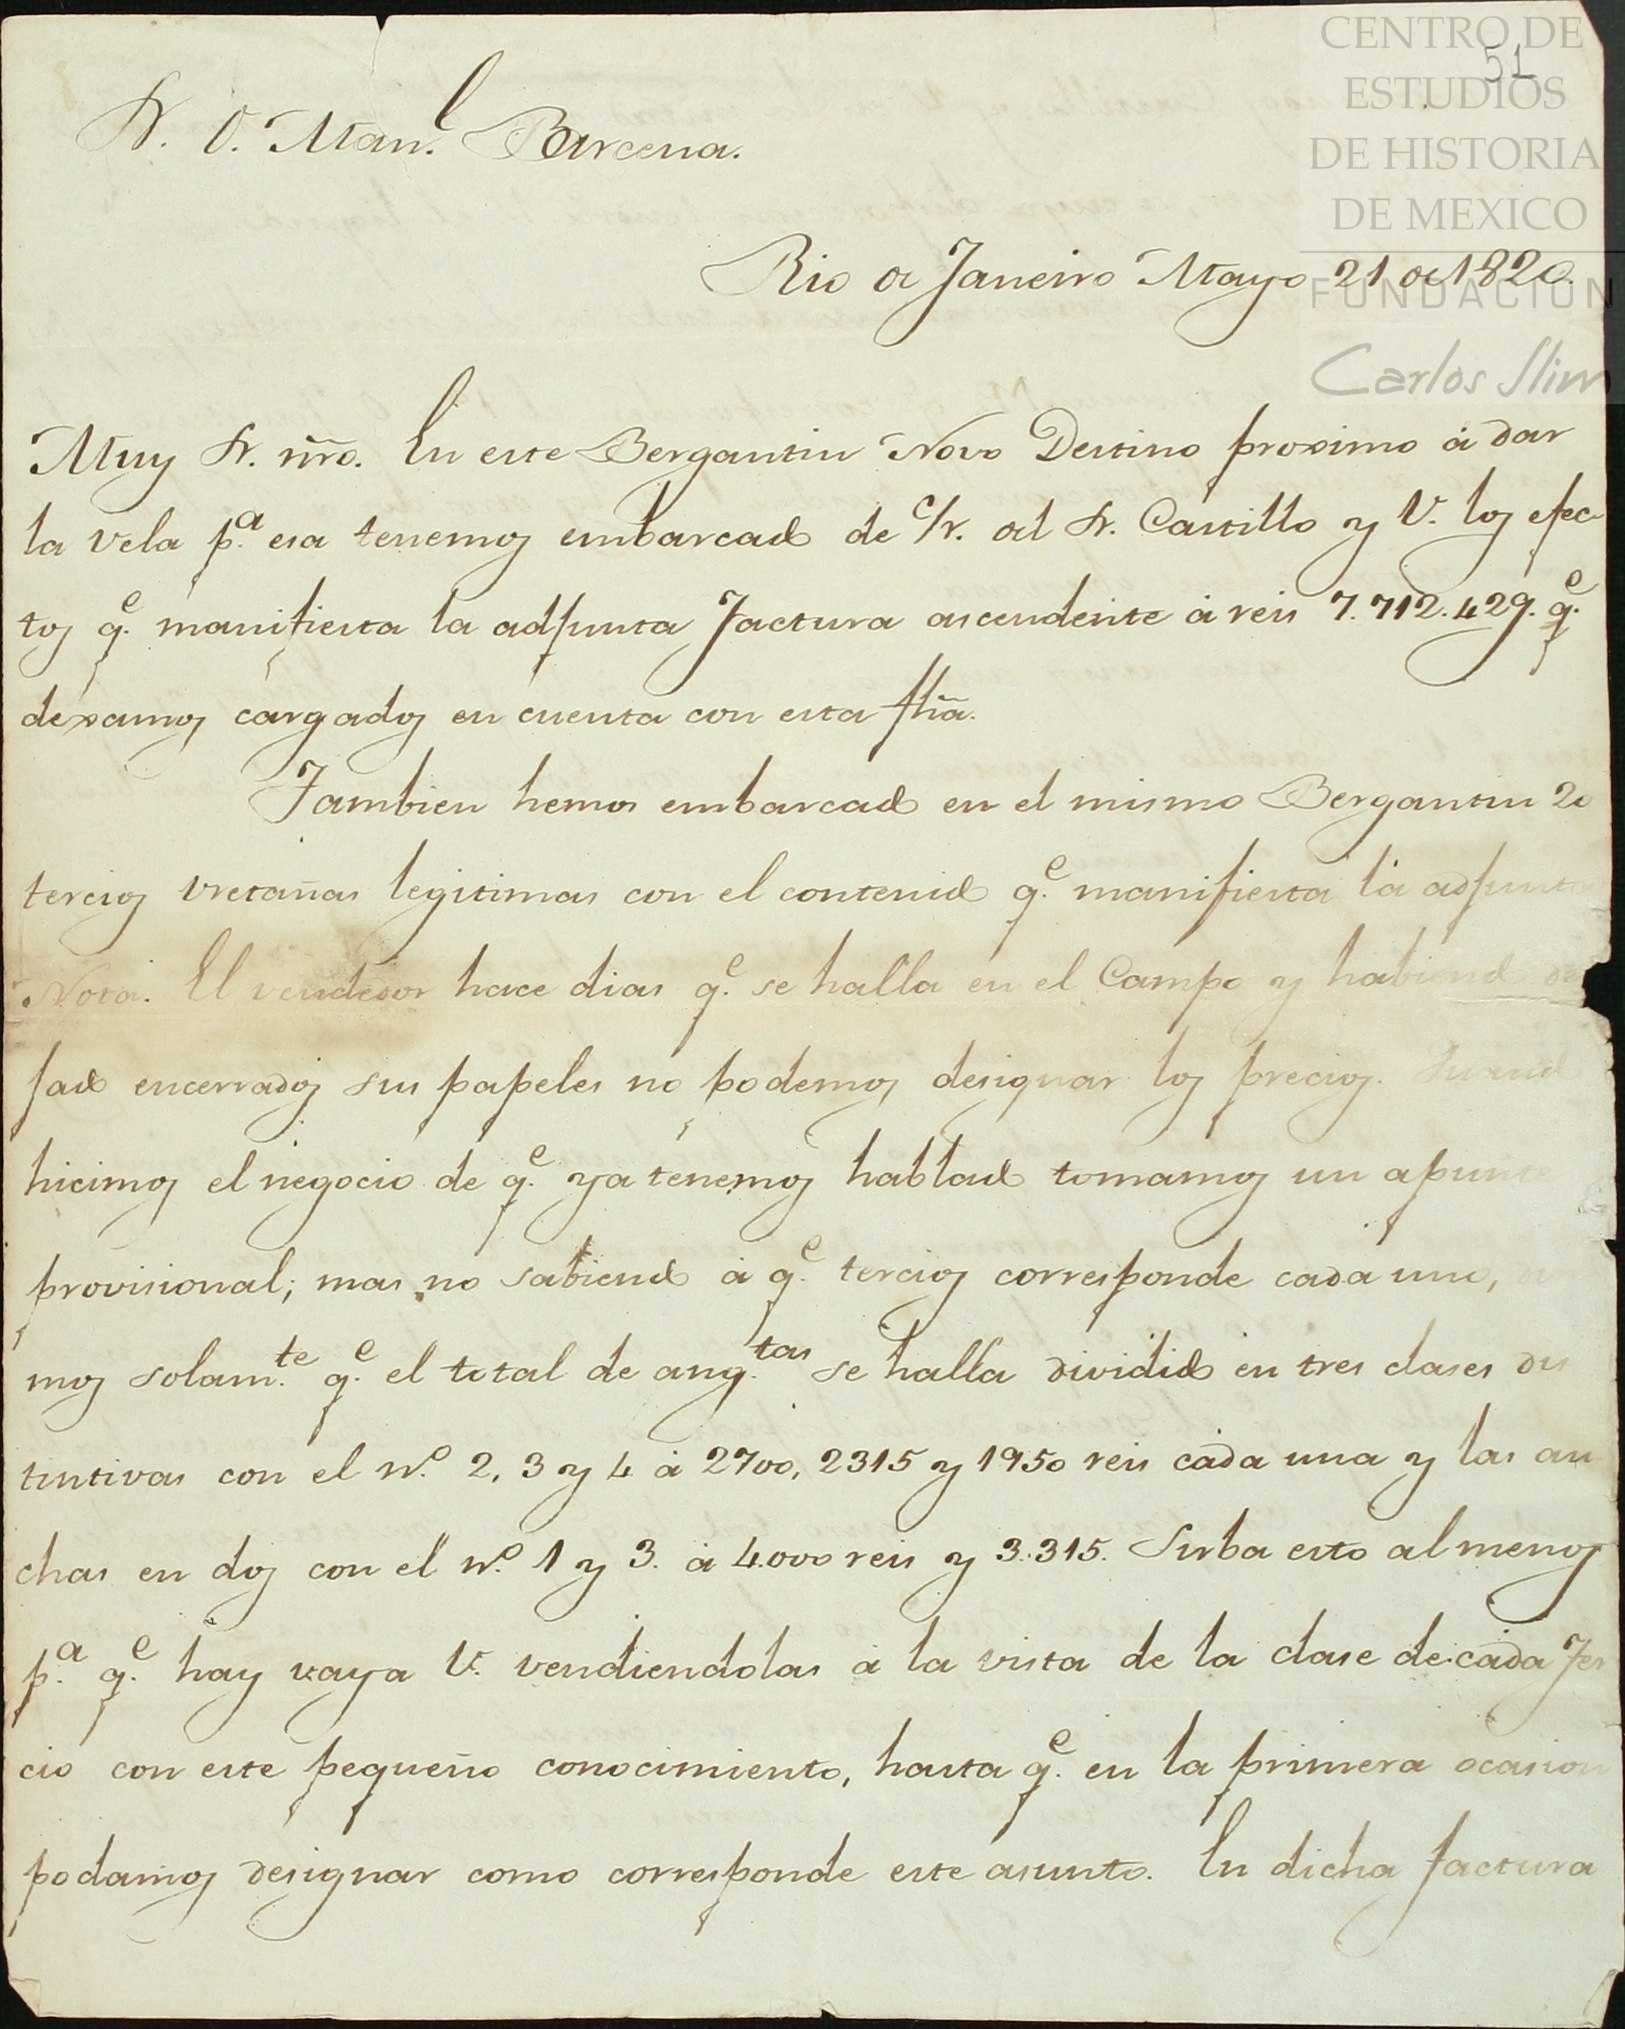 CENTRO DE
ESTUDIOS
DE HISTORIA
DE MEXICO
FUNDACION
Carlos Slim
51
Sr. D. Man.l Barcena.
Rio de Janeiro Mayo 21 de 1820.
Muy Sr. nro. En este Bergantin Novo Destino proximo á dar
la vela p.a esa tenemos embarcado de c/r. del Sr. Castillo y V. los efec-
tos q.e manifiesta la adjunta Factura ascendente á reis 7.712.429. q.e
dexamos cargados en cuenta con esta fha.
Tambien hemos embarcado en el mismo Bergantin 20
tercios vretañas legitimas con el contenido q.e manifiesta la adjunta
Nota. El vendedor hace dias q.e se halla en el Campo y habiendo de
jado encerrados sus papeles no podemos designar los precios.
hicimos el negocio de q.e ya tenemos hablado tomamos un apunte
provisional; mas no sabiendo á q.e tercios corresponde cada uno,
mos solam.te q.e el total de ang.tas se halla dividido en tres clases dis
tintivas con el n.o 2, 3 y 4 á 2700, 2315 y 1950 reis cada una y las an
chas en dos con el n.o 1 y 3. á 4000 reis y 3.315. Sirba esto al menos
p.a q.e hay vaya V. vendiendolas á la vista de la clase de cada Ter
cio con este pequeño conocimiento, hasta q.e en la primera ocasion
podamos designar como corresponde este asunto. En dicha factura